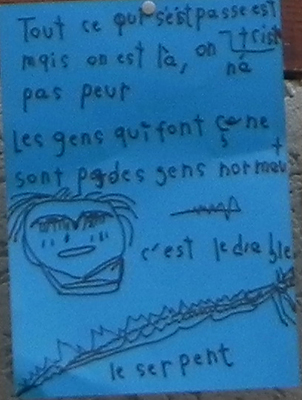 Tout ce qui s'est passe est
trist
mais on est là, on
n'a
pas peur
Les gens qui font ça ne
sont pas des gens normau
c'est le diable
le serpent